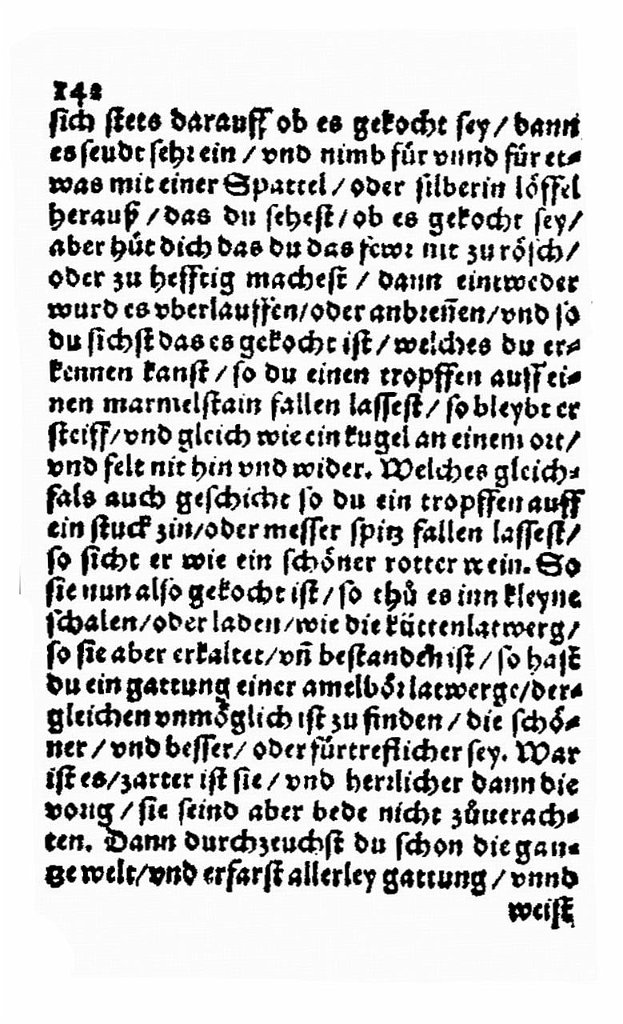 142
sich stets darauff ob es gekocht sey / dann
es seudt sehr ein / vnd nimb für vnnd für et⸗
was mit einer Spattel / oder silberin löffel
herauß / das du sehest / ob es gekocht sey /
aber hüt dich das du das fewr nit zu rösch /
oder zu hefftig machest / dann eintweder
wurd es vberlauffen / oder anbreñen / vnd so
du sichst das es gekocht ist / welches du er⸗
kennen kanst / so du einen tropffen auff ei⸗
nen marmelstain fallen lassest / so bleybt er
steiff / vnd gleich wie ein kugel an einem ort /
vnd felt nit hin vnd wider. Welches gleich⸗
fals auch geschicht so du ein tropffen auff
ein stuck zin / oder messer spitz fallen lassest /
so sicht er wie ein schöner rotter wein. So
sie nun also gekocht ist / so thů es inn kleyne
schalen / oder laden / wie die küttenlatwerg /
so sie aber erkaltet / vñ bestanden ist / so hast
du ein gattung einer amelbörlatwerge / der⸗
gleichen vnmöglich ist zu finden / die schö⸗
ner / vnd besser / oder fürtreflicher sey. War
ist es / zarter ist sie / vnd herrlicher dann die
vorig / sie seind aber bede nicht zůuerach⸗
ten. Dann durchzeuchst du schon die gan⸗
tze welt / vnd erfarst allerley gattung / vnnd
weist